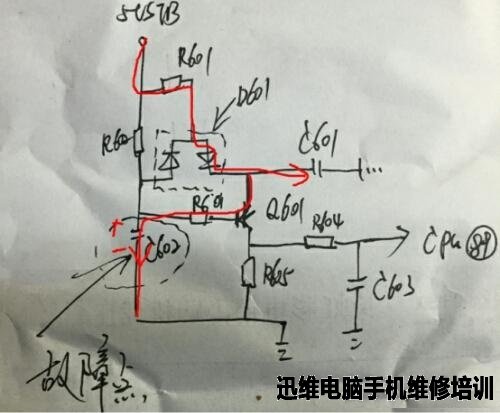 5VSTB
R601
D601
R602
C601
Q601
R604
C602
R605
C603
CPU 89
故障点
迅维电脑手机维修培训